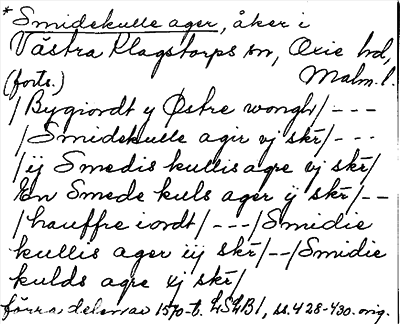 * Smidekulle ager, åker i
Västra Klagstorps sn, Oxie hd,
(forts.) Malm. l.
/Bygiordt y Østre wongh/---
/Smidekulle agir vj skr̄/---
/ij Smedis kullis agre vj skr̄/
En Smede kuls ager ij skr̄/--
/hauffre iordt/---/Smidie
kullis ager iij skr̄/--/Smidie
kulds agre xj skr̄/
förra delen av 1570-t. LSHB1, ss. 428-430. orig.